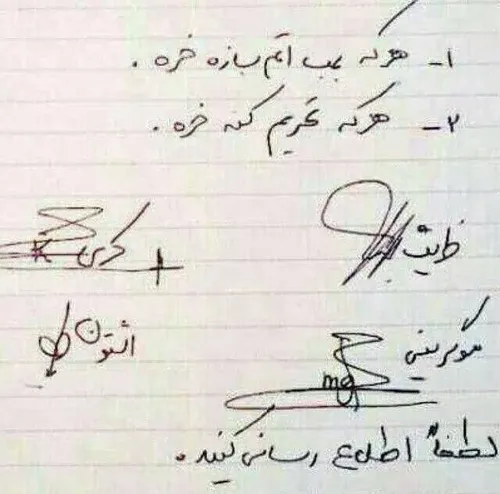 ۱- هرکه بمب اتم بسازه خره.
۲- هرکه تحریم کنه خره.
ظریف
کری
اشتون
موگرینی
mg
لطفاً اطلاع رسانی کنید.